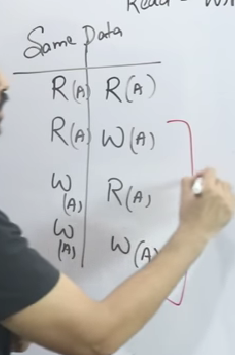 Same Data
R(A) R(A)
R(A) W(A)
W(A) R(A)
W(A) W(A)